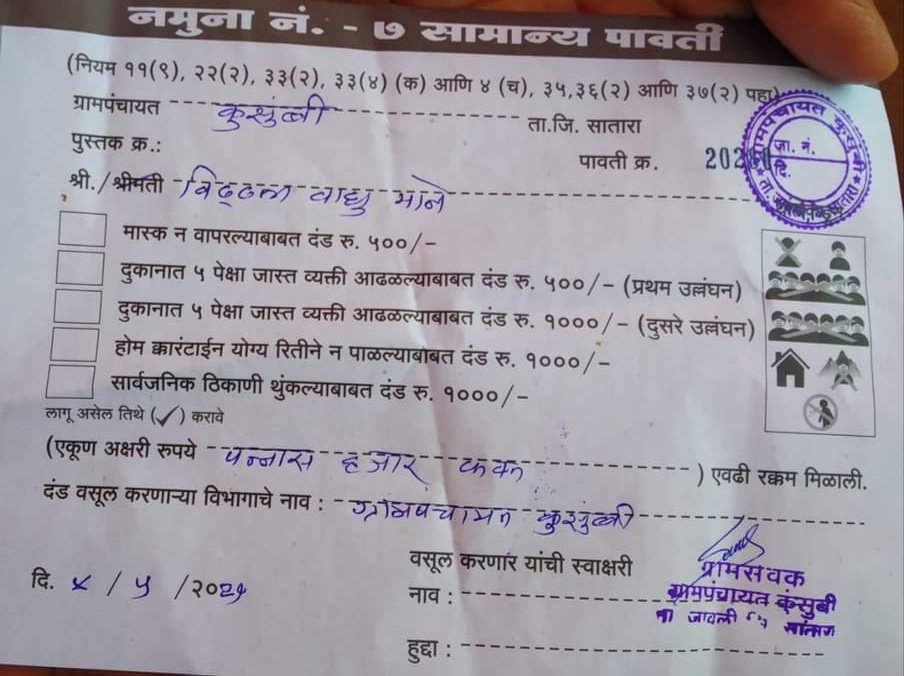 नमुना नं. - ७ सामान्य पावती
(नियम ११(९), २२(२), ३३(२), ३३(४) (क) आणि ४ (च), ३५,३६(२) आणि ३७(२) पहा)
ग्रामपंचायत कुसुंबी ता.जि. सातारा
पुस्तक क्र.: पावती क्र.
श्री./श्रीमती विठ्ठल वाघु माने
मास्क न वापरल्याबाबत दंड रु. ५००/-
दुकानात ५ पेक्षा जास्त व्यक्ती आढळल्याबाबत दंड रु. ५००/- (प्रथम उल्लंघन)
दुकानात ५ पेक्षा जास्त व्यक्ती आढळल्याबाबत दंड रु. १०००/- (दुसरे उल्लंघन)
होम क्वारंटाईन योग्य रितीने न पाळल्याबाबत दंड रु. १०००/-
सार्वजनिक ठिकाणी थुंकल्याबाबत दंड रु. १०००/-
लागू असेल तिथे (✓) करावे
(एकूण अक्षरी रुपये पन्नास हजार फक्त) एवढी रक्कम मिळाली.
दंड वसूल करणाऱ्या विभागाचे नाव : ग्रामपंचायत कुसुंबी
वसूल करणार यांची स्वाक्षरी
दि. ४ / ५ / २०२१
नाव :
हुद्दा :
ग्रामसेवक
ग्रामपंचायत कुंसुबी
ता जावली
ग्रामपंचायत कुसुंबी
जा. नं.
दि.